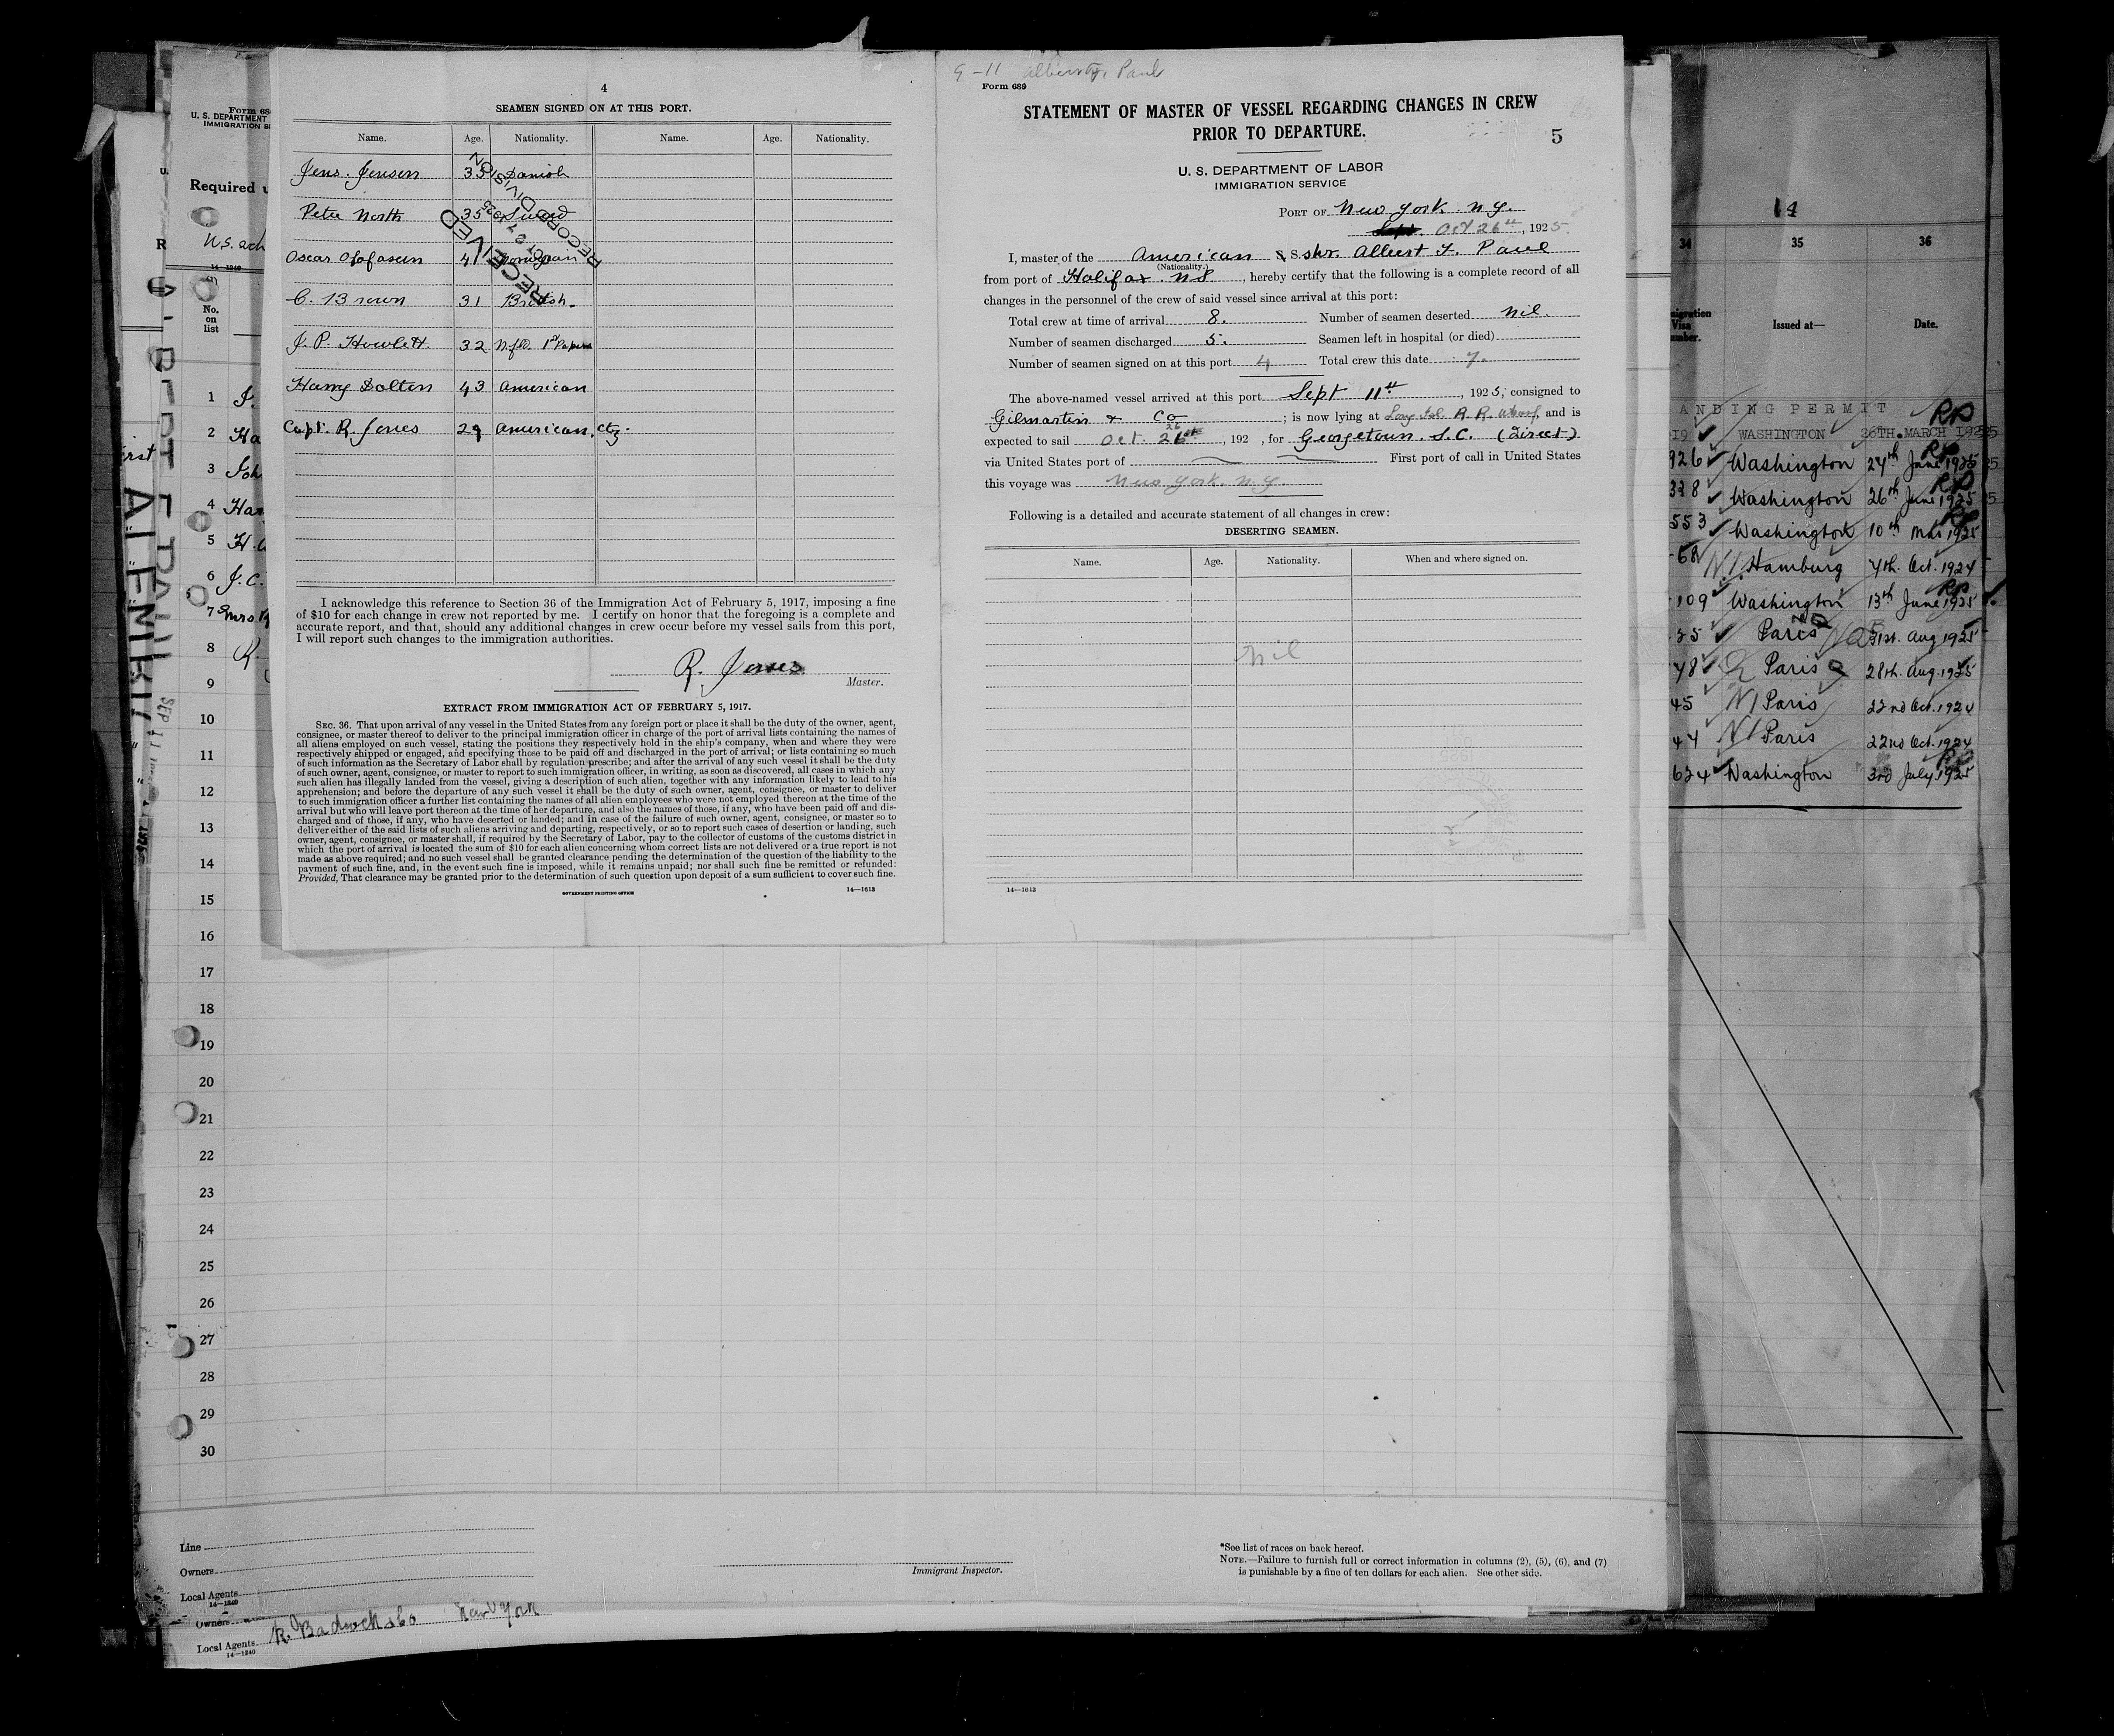 4
SEAMEN SIGNED ON AT THIS PORT.
Name. Age. Nationality. Name. Age. Nationality.
Jens. Jensen 35 Danish
Peter North 35 Swed
Oscar Olofasen 41
C. Brown 31 British.
J. P. Howlett. 32 Nfld. 1st Papers
Harry Dolten 43 American
Capt. R. Jones 29 American. Ctz.
RECEIVED
OCT 27 1925
RECORD DIVISION
I acknowledge this reference to Section 36 of the Immigration Act of February 5, 1917, imposing a fine
of $10 for each change in crew not reported by me. I certify on honor that the foregoing is a complete and
accurate report, and that, should any additional changes in crew occur before my vessel sails from this port,
I will report such changes to the immigration authorities.
R. Jones
Master.
EXTRACT FROM IMMIGRATION ACT OF FEBRUARY 5, 1917.
SEC. 36. That upon arrival of any vessel in the United States from any foreign port or place it shall be the duty of the owner, agent,
consignee, or master thereof to deliver to the principal immigration officer in charge of the port of arrival lists containing the names of
all aliens employed on such vessel, stating the positions they respectively hold in the ship's company, when and where they were
respectively shipped or engaged, and specifying those to be paid off and discharged in the port of arrival; or lists containing so much
of such information as the Secretary of Labor shall by regulation prescribe; and after the arrival of any such vessel it shall be the duty
of such owner, agent, consignee, or master to report to such immigration officer, in writing, as soon as discovered, all cases in which any
such alien has illegally landed from the vessel, giving a description of such alien, together with any information likely to lead to his
apprehension; and before the departure of any such vessel it shall be the duty of such owner, agent, consignee, or master to deliver
to such immigration officer a further list containing the names of all alien employees who were not employed thereon at the time of the
arrival but who will leave port thereon at the time of her departure, and also the names of those, if any, who have been paid off and dis-
charged and of those, if any, who have deserted or landed; and in case of the failure of such owner, agent, consignee, or master so to
deliver either of the said lists of such aliens arriving and departing, respectively, or so to report such cases of desertion or landing, such
owner, agent, consignee, or master shall, if required by the Secretary of Labor, pay to the collector of customs of the customs district in
which the port of arrival is located the sum of $10 for each alien concerning whom correct lists are not delivered or a true report is not
made as above required; and no such vessel shall be granted clearance pending the determination of the question of the liability to the
payment of such fine, and, in the event such fine is imposed, while it remains unpaid; nor shall such fine be remitted or refunded:
Provided, That clearance may be granted prior to the determination of such question upon deposit of a sum sufficient to cover such fine.
GOVERNMENT PRINTING OFFICE 14—1613
9-11 Paul
Form 689
STATEMENT OF MASTER OF VESSEL REGARDING CHANGES IN CREW
PRIOR TO DEPARTURE.
5
U. S. DEPARTMENT OF LABOR
IMMIGRATION SERVICE
PORT OF New York. N.Y.
Oct 26th, 1925
I, master of the American S. S. shr. Albert F. Paul
(Nationality.)
from port of Halifax. N.S., hereby certify that the following is a complete record of all
changes in the personnel of the crew of said vessel since arrival at this port:
Total crew at time of arrival 8. Number of seamen deserted nil.
Number of seamen discharged 5. Seamen left in hospital (or died)
Number of seamen signed on at this port 4 Total crew this date 7.
The above-named vessel arrived at this port Sept 11th, 1925, consigned to
Gilmartin & Co; is now lying at Long Isl. R. R. Wharf, and is
expected to sail Oct. 26th, 192 , for Georgetown. S.C. (Direct)
via United States port of First port of call in United States
this voyage was New York. N.Y.
Following is a detailed and accurate statement of all changes in crew:
DESERTING SEAMEN.
Name. Age. Nationality. When and where signed on.
nil
14—1613
Form 68
U. S. DEPARTMENT
IMMIGRATION SE
Required u
14—1240
No.
on
list
1 J.
2 Ha
3 Joh
4 Har
5 H.
6 J.C.
7 Mrs.
8 K.
9
10
11
12
13
14
15
16
17
18
19
20
21
22
23
24
25
26
27
28
29
30
ALBERT F. PAUL
SEP 11
14
34 35 36
migration
Visa
number. Issued at— Date.
ANDING PERMIT
19 WASHINGTON 26TH. MARCH 1925
926 Washington 24th June 1925
328 Washington 26th June 1925
553 Washington 10th Mar 1925
68 Hamburg 4th. Oct. 1924
109 Washington 13th June 1925
25 Paris 31st. Aug 1925
48 Paris 28th. Aug. 1925
45 Paris 22nd Oct. 1924
44 Paris 22nd Oct. 1924
624 Washington 3rd July 1925
Line
Owners
Local Agents
14—1240
Immigrant Inspector.
*See list of races on back hereof.
NOTE.—Failure to furnish full or correct information in columns (2), (5), (6), and (7)
is punishable by a fine of ten dollars for each alien. See other side.
Owners
Local Agents New York
14—1240